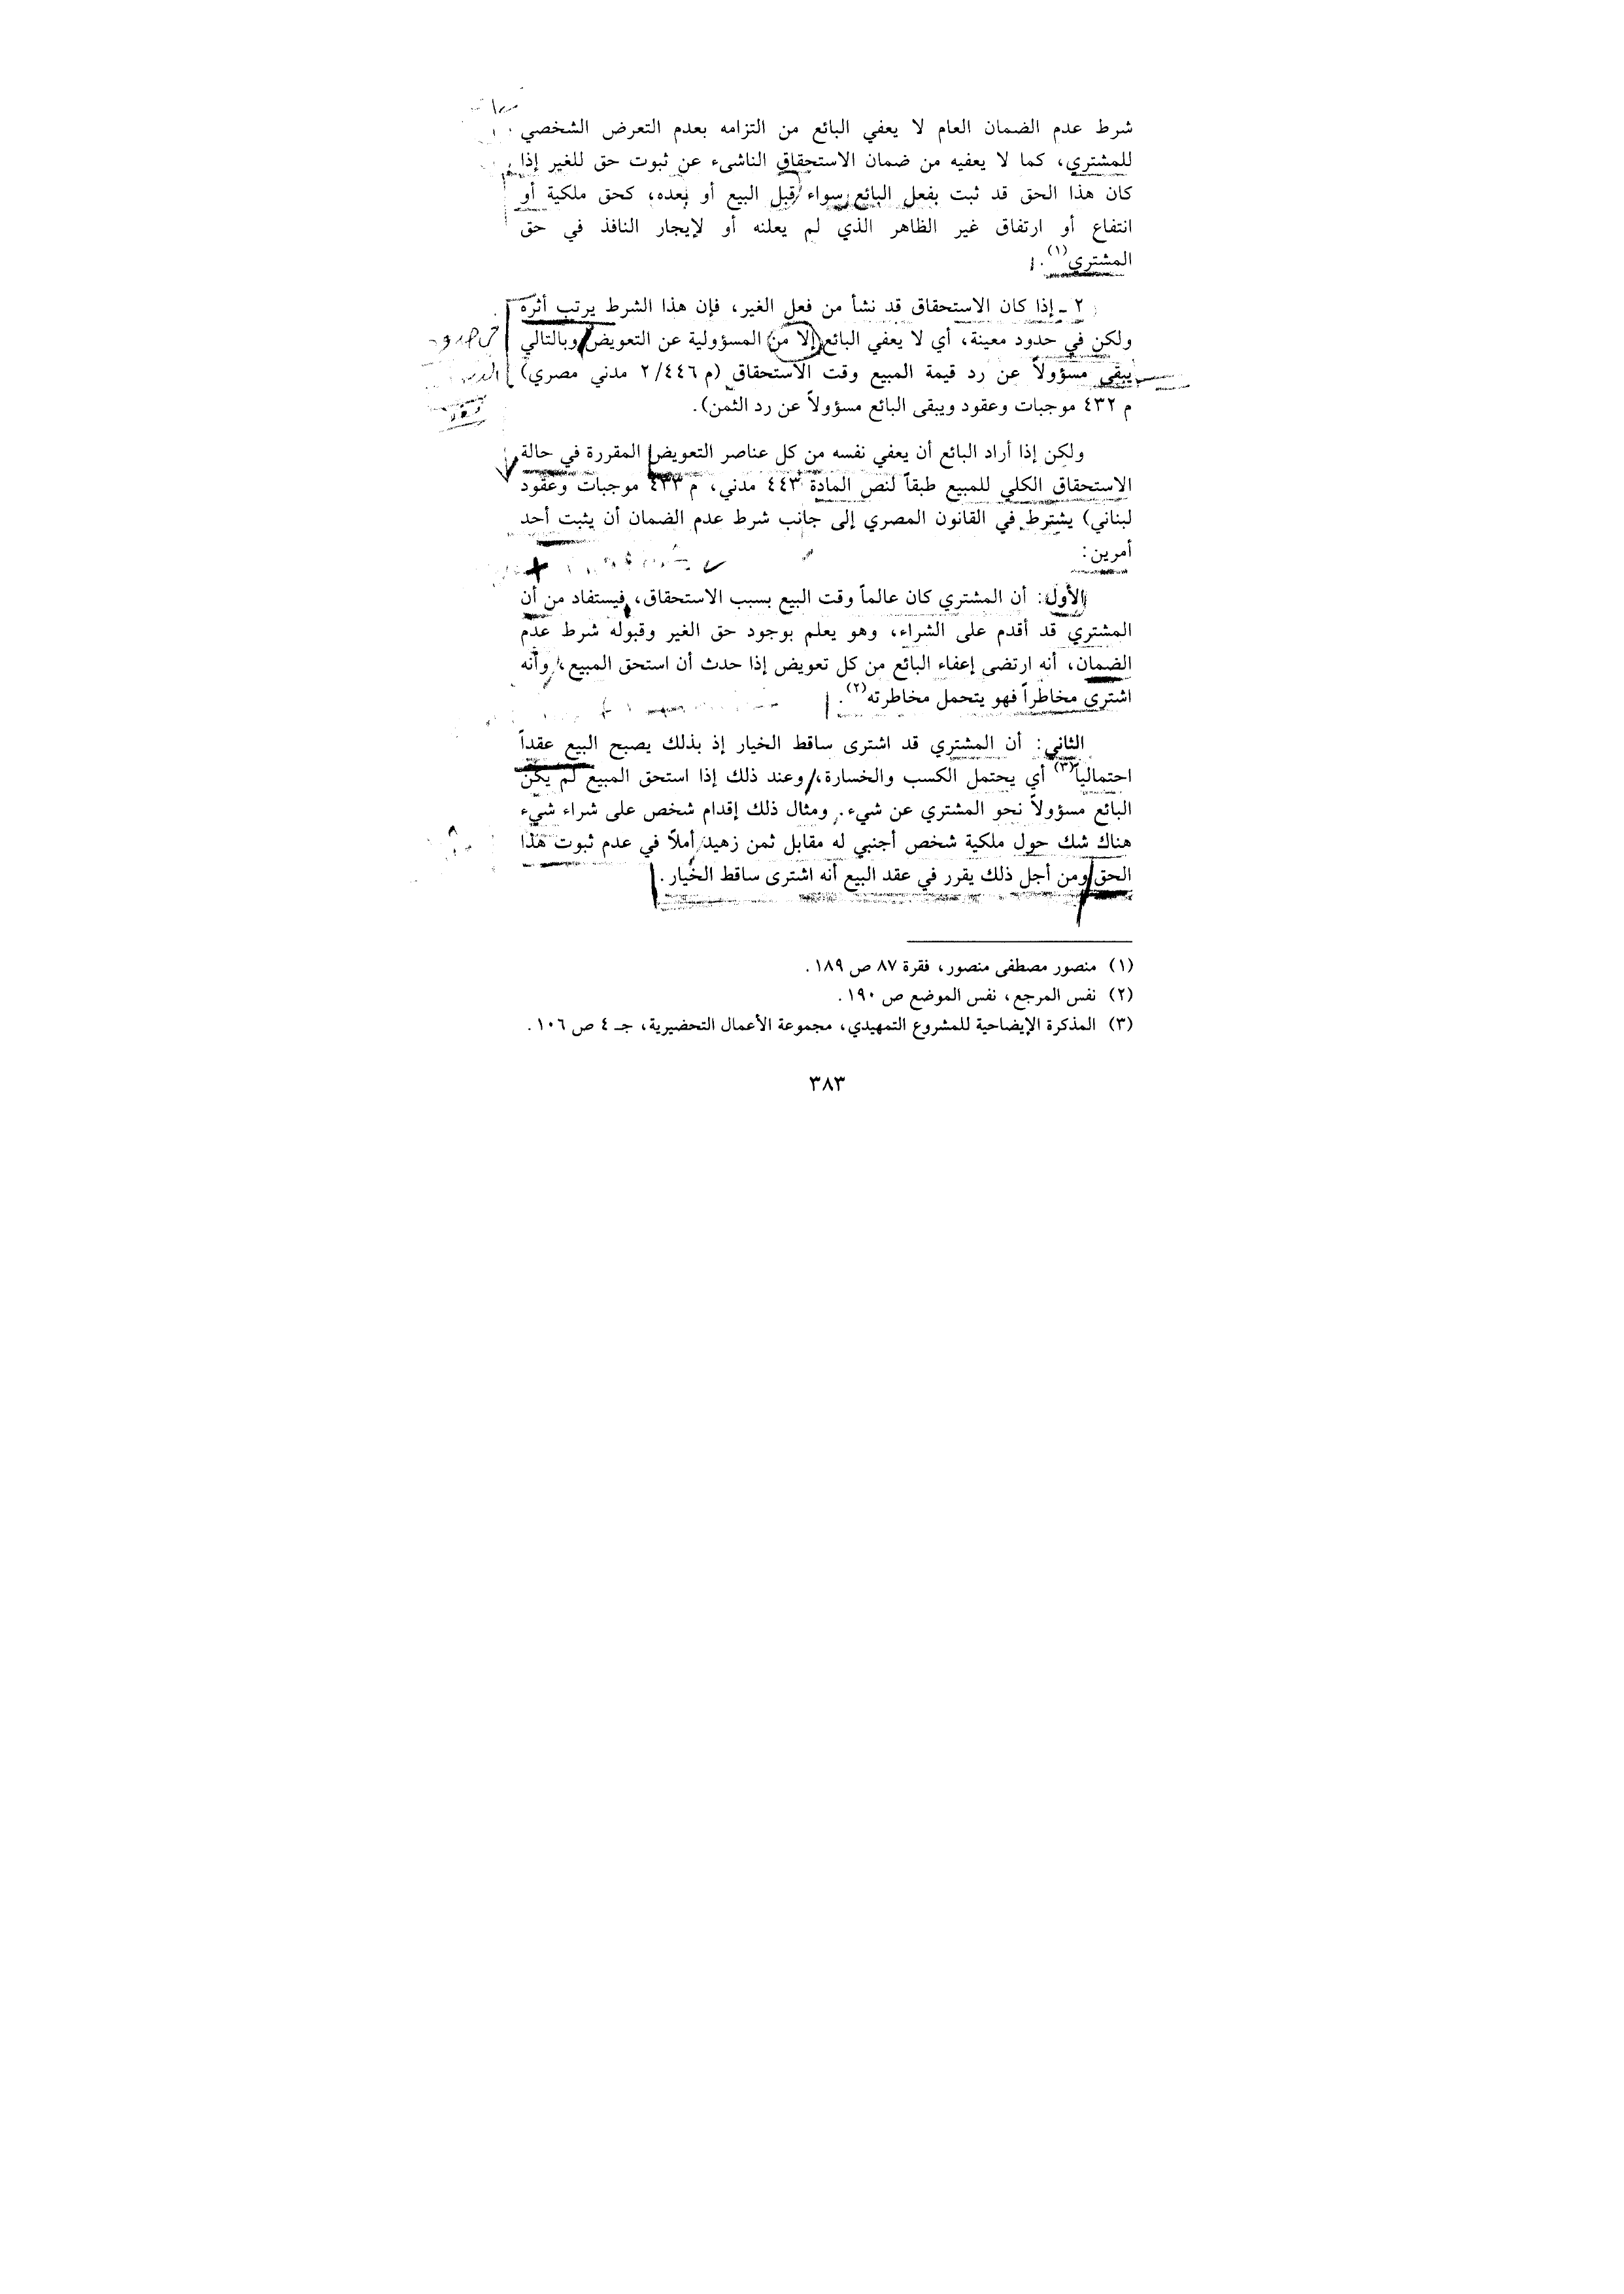 شرط عدم الضمان العام لا يعفي البائع من التزامه بعدم التعرض الشخصي
للمشتري، كما لا يعفيه من ضمان الاستحقاق الناشىء عن ثبوت حق للغير إذا
كان هذا الحق قد ثبت بفعل البائع سواء قبل البيع أو بعده، كحق ملكية أو
انتفاع أو ارتفاق غير الظاهر الذي لم يعلنه أو لإيجار النافذ في حق
المشتري(١).
٢ ـ إذا كان الاستحقاق قد نشأ من فعل الغير، فإن هذا الشرط يرتب أثره
ولكن في حدود معينة، أي لا يعفي البائع إلا من المسؤولية عن التعويض وبالتالي
يبقى مسؤولاً عن رد قيمة المبيع وقت الاستحقاق (م ٢/٤٤٦ مدني مصري)
م ٤٣٢ موجبات وعقود ويبقى البائع مسؤولاً عن رد الثمن).
ولكن إذا أراد البائع أن يعفي نفسه من كل عناصر التعويض المقررة في حالة
الاستحقاق الكلي للمبيع طبقاً لنص المادة ٤٤٣ مدني، م ٤٣٣ موجبات وعقود
لبناني) يشترط في القانون المصري إلى جانب شرط عدم الضمان أن يثبت أحد
أمرين:
الأول: أن المشتري كان عالماً وقت البيع بسبب الاستحقاق، فيستفاد من أن
المشتري قد أقدم على الشراء، وهو يعلم بوجود حق الغير وقبوله شرط عدم
الضمان، أنه ارتضى إعفاء البائع من كل تعويض إذا حدث أن استحق المبيع، وأنه
اشترى مخاطراً فهو يتحمل مخاطرته(٢).
الثاني: أن المشتري قد اشترى ساقط الخيار إذ بذلك يصبح البيع عقداً
احتمالياً(٣) أي يحتمل الكسب والخسارة، وعند ذلك إذا استحق المبيع لم يكن
البائع مسؤولاً نحو المشتري عن شيء. ومثال ذلك إقدام شخص على شراء شيء
هناك شك حول ملكية شخص أجنبي له مقابل ثمن زهيد أملاً في عدم ثبوت هذا
الحق ومن أجل ذلك يقرر في عقد البيع أنه اشترى ساقط الخيار.
(١) منصور مصطفى منصور، فقرة ٨٧ ص ١٨٩.
(٢) نفس المرجع، نفس الموضع ص ١٩٠.
(٣) المذكرة الإيضاحية للمشروع التمهيدي، مجموعة الأعمال التحضيرية، جـ ٤ ص ١٠٦.
٣٨٣